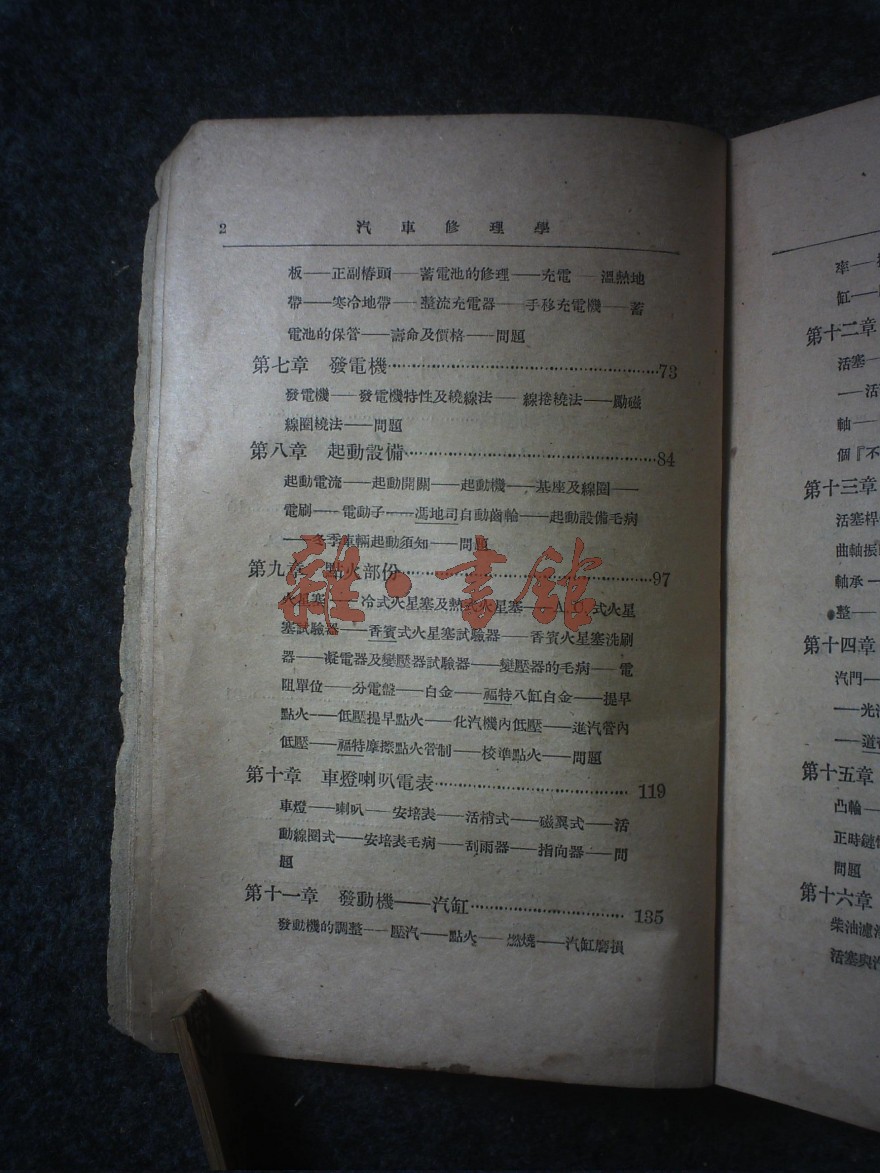 2 汽車修理學
板——正副樁頭——蓄電池的修理——充電——溫熱地
帶——寒冷地帶——整流充電器——手移充電機——蓄
電池的保管——壽命及價格——問題
第七章 發電機 73
發電機——發電機特性及繞線法——線捲橈法——勵磁
線圈橈法——問題
第八章 起動設備 84
起動電流——起動開關——起動機——基座及線圈——
電刷——電動子——馮地司自動齒輪——起動設備毛病
——冬季車輛起動須知——問題
第九章 點火部份 97
火星塞——冷式火星塞及熱式火星塞——A.C.式火星
塞試驗器——香賓式火星塞試驗器——香賓火星塞洗刷
器——凝電器及變壓器試驗器——變壓器的毛病——電
阻單位——分電盤——白金——福特八缸白金——提早
點火——低壓提早點火——化汽機內低壓——進汽管內
低壓——福特摩擦點火管制——校準點火——問題
第十章 車燈喇叭電表 119
車燈——喇叭——安培表——活梢式——磁翼式——活
動線圈式——安培表毛病——刮雨器——指向器——問
題
第十一章 發動機——汽缸 135
發動機的調整——壓汽——點火——燃燒——汽缸磨損
雜·書館
率——
缸——
第十二章
活塞——
——活
軸——
個『不
第十三章
活塞桿
曲軸振
軸承——
整——
第十四章
汽門——
——光
——道
第十五章
凸輪——
正時鏈
問題
第十六章
柴油濾
活塞與汽